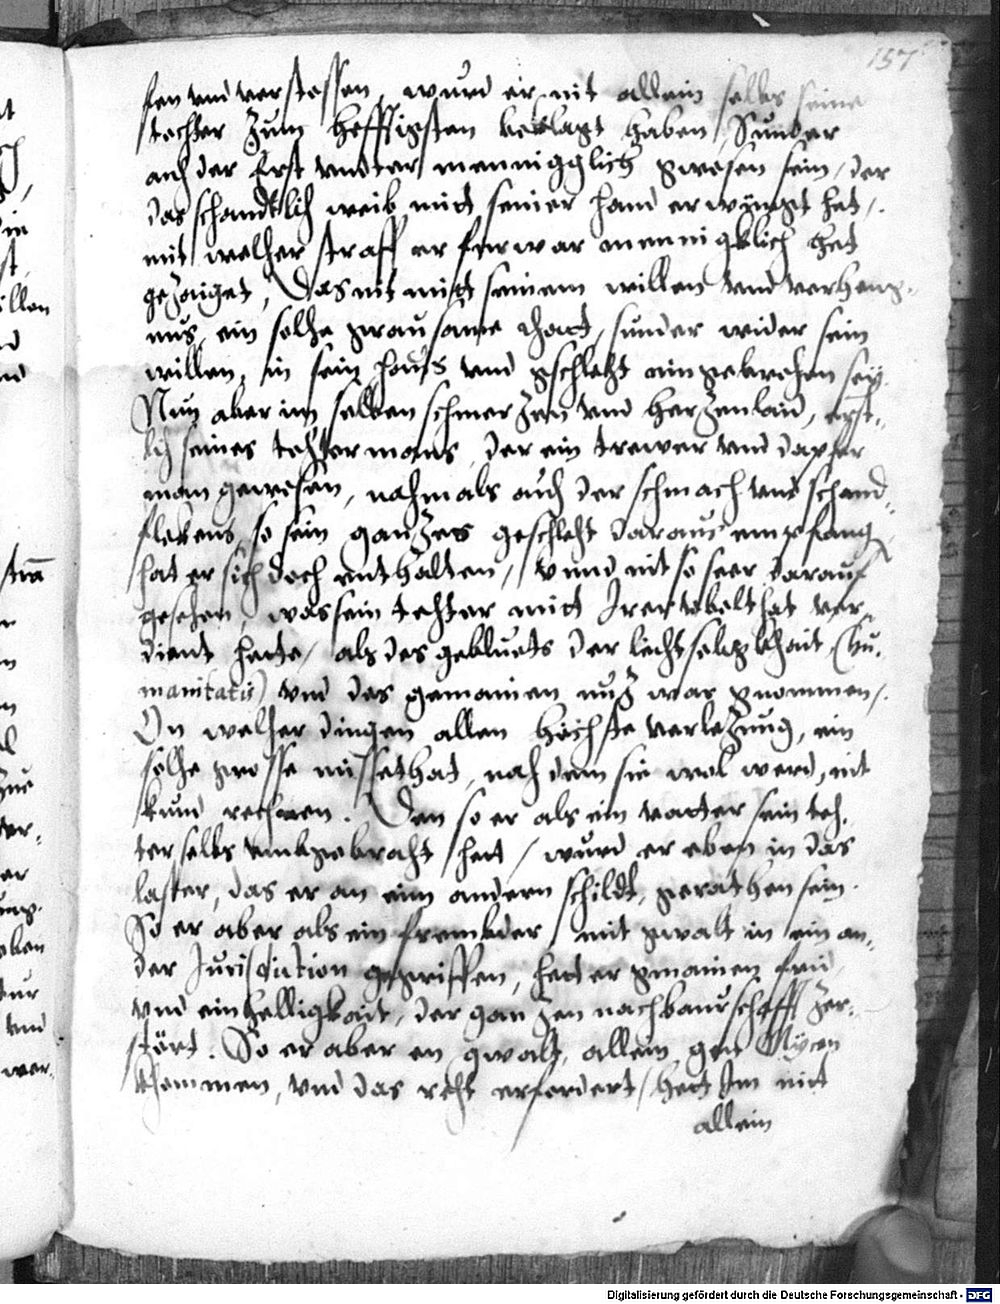 157
sen und verstossen, wurd er nit allein selbs seine
tochter zum hefftigsten beklagt haben, Sunder
auch der Erst undter mennigglich gwesen sein, der
das schandtlich weib mitt seiner hand erwürgt het,
mit welcher straff er furwar mennigklich het
gezaiget, Das nit mitt seinem willen und verheng-
nus, ein solhe grausame thatt, sunder wider sein
willen, in sein hauss und gschleht eingebrochen sey.
Nun aber im selben schmerzen und herzenlaid, erst-
lich seines tohtermans, der ein trewer und dapfer
man gewesen, nahmals auch der schmach und schand-
flekens, so sein ganzes geschleht daraus empfang
hat er sich doch enthalten, unnd nit so seer darauf
gesehen, was sein tohter mitt Irer ubelthat ver-
dient hette, als des gebluets der leihtselikhait (hu-
manitatis) und des gemainen nuz war gnommen.
On welher dingen allen höchste verlezung, ein
solhe grosse missethat, nah dem sie wol werd, nit
kund rechnen. Den so er als ein vatter sein toh-
ter selbs umbgebraht hett, wurd er eben in das
laster, das er an eim andern schildt, gerathen sein.
So er aber als ein frembder mit gwalt in ein an-
der Jurisdiction gegriffen, hett er gmainen frid
und einhelligkait, der ganzen nachbaurschafft zer-
stört. So er aber on gwalt, allein gen
khommen, und das reht erfordert, hett Im nitt
allein
Digitalisierung gefördert durch die Deutsche Forschungsgemeinschaft - DFG